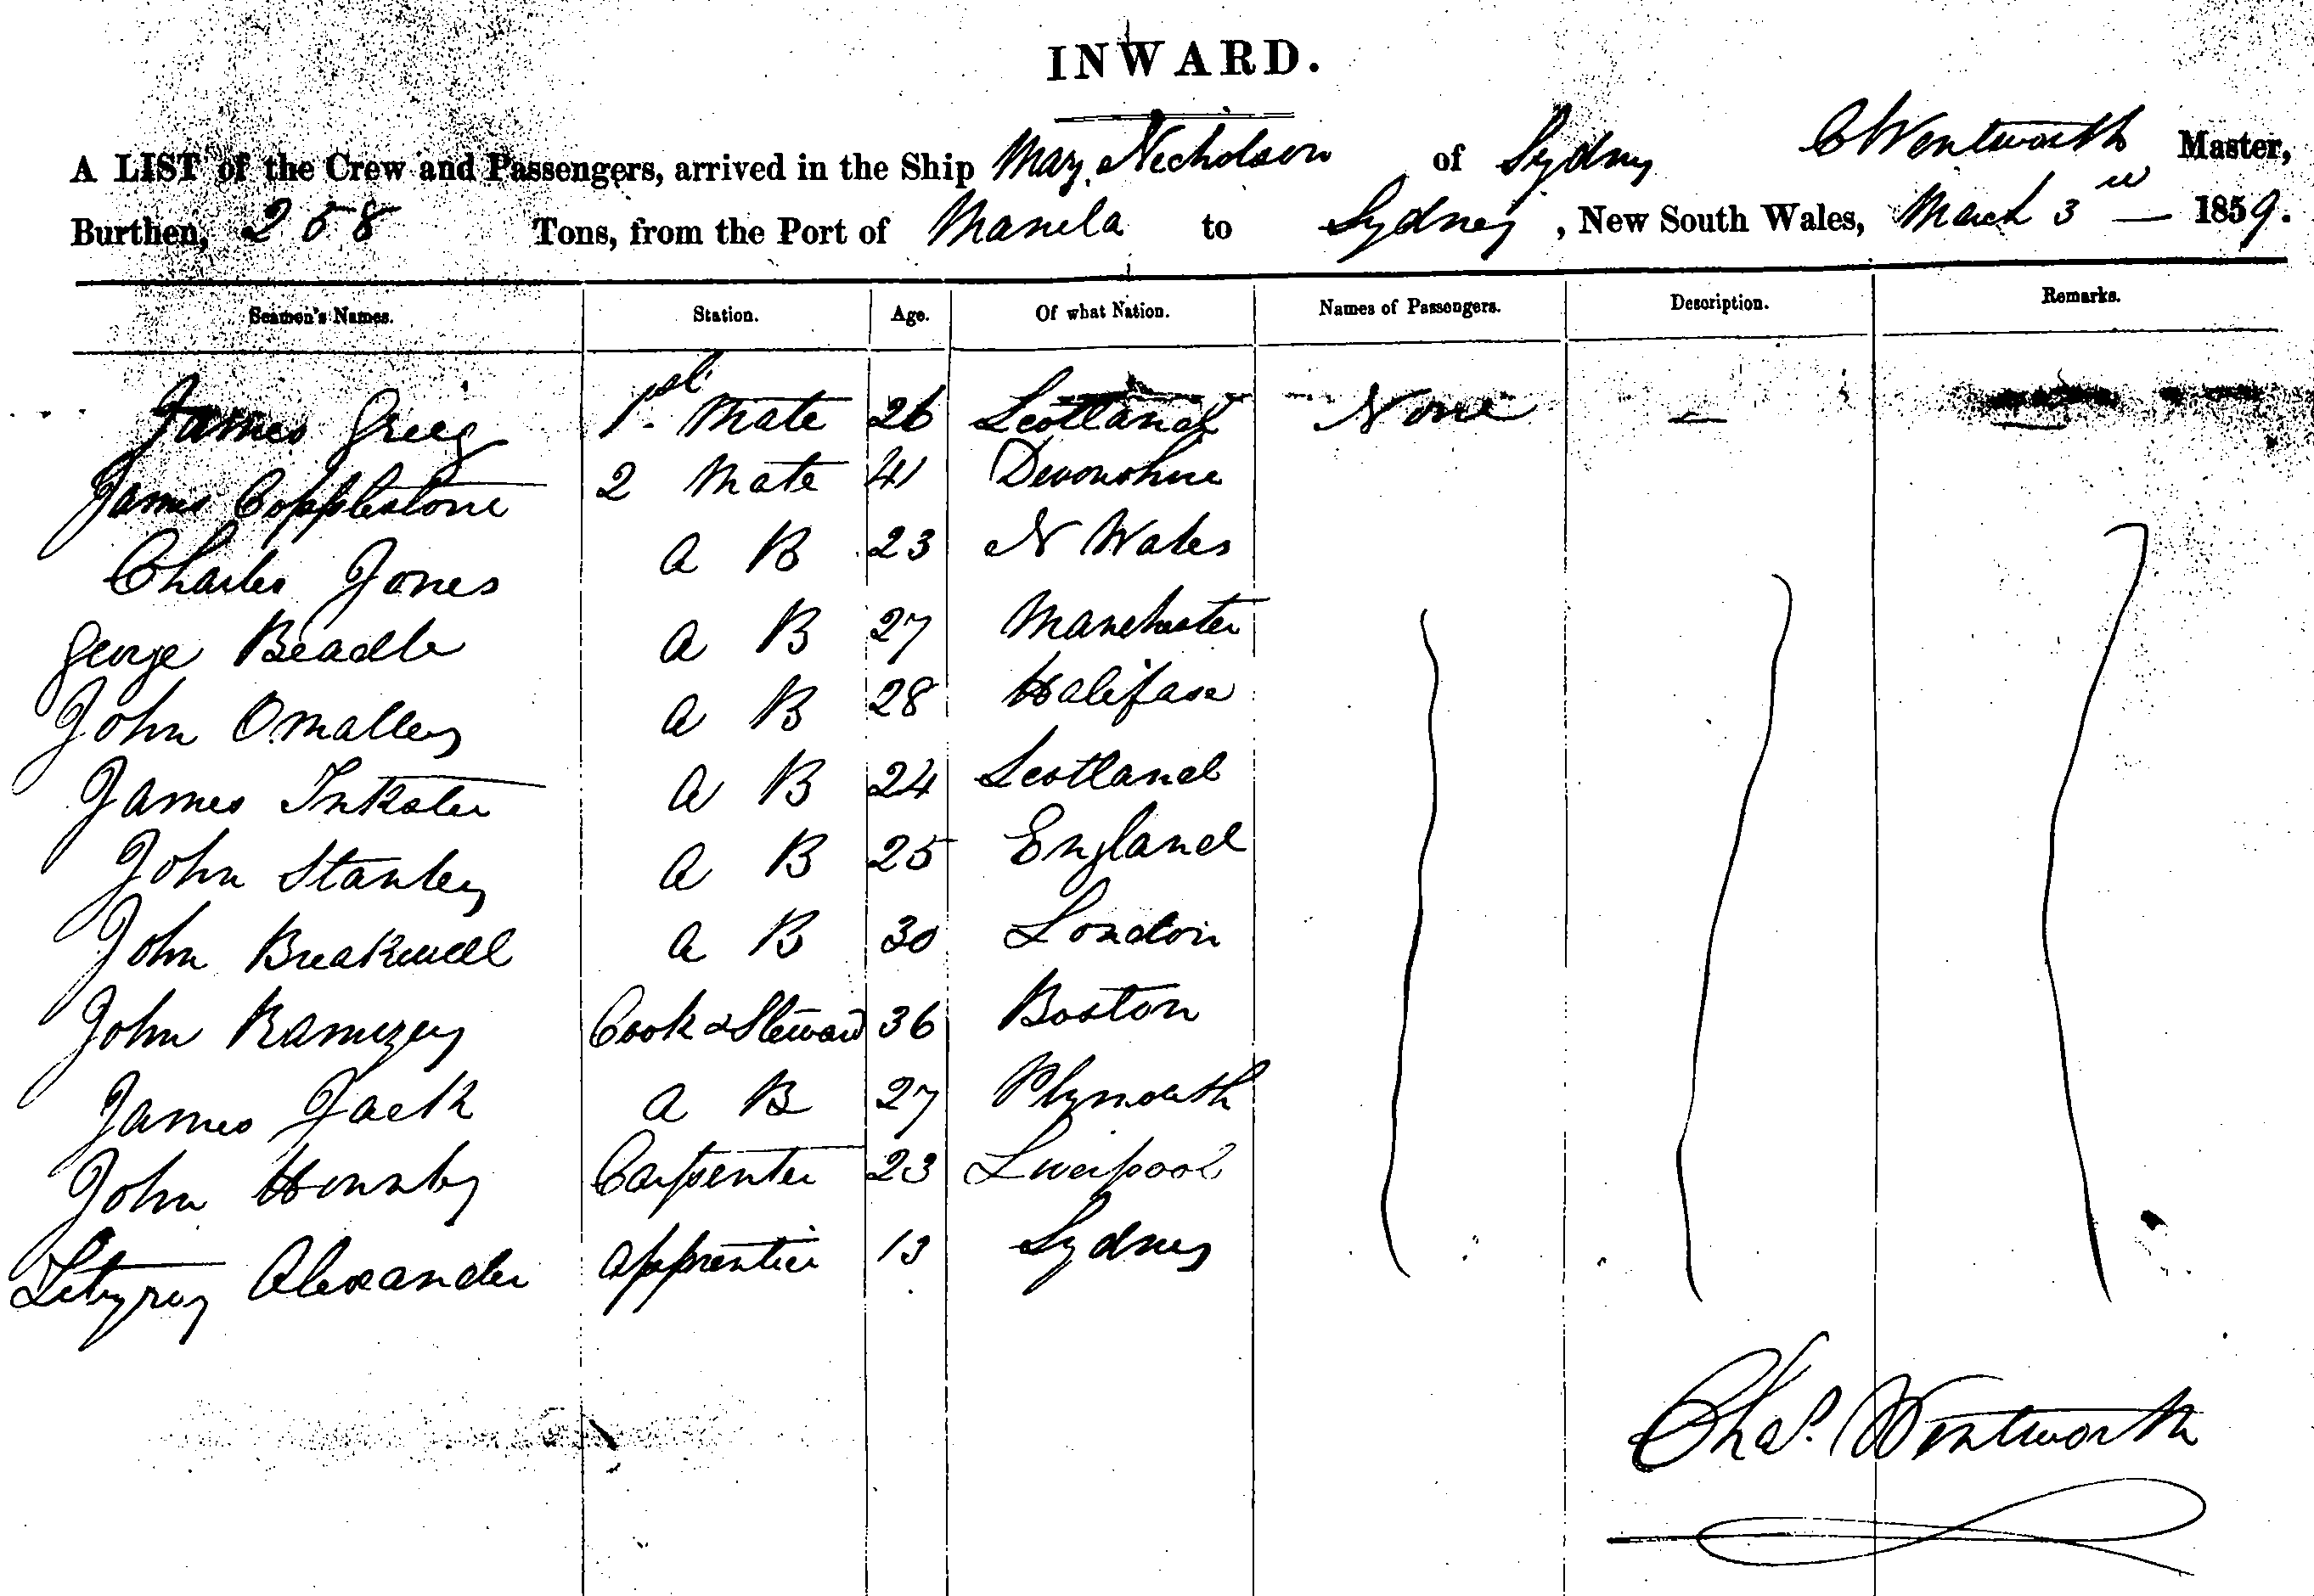 INWARD.
A LIST of the Crew and Passengers, arrived in the Ship Mary Nicholson of Sydney C Wentworth Master,
Burthen, 258 Tons, from the Port of Manila to Sydney, New South Wales, March 3rd — 1859.
Seamen's Names. Station. Age. Of what Nation. Names of Passengers. Description. Remarks.
James Greeg 1st. Mate 26 Scotland None —
James Copplestone 2 Mate 41 Devonshire
Charles Jones A B 23 N Wales
George Beadle A B 27 Manchester
John Omalley A B 28 Halifax
James Inkster A B 24 Scotland
John Stanley A B 25 England
John Breakwell A B 30 London
John Ramzey Cook & Steward 36 Boston
James Jack A B 27 Plymouth
John Hornby Carpenter 23 Liverpool
Alexander Apprentice 13 Sydney
Chas. Wentworth